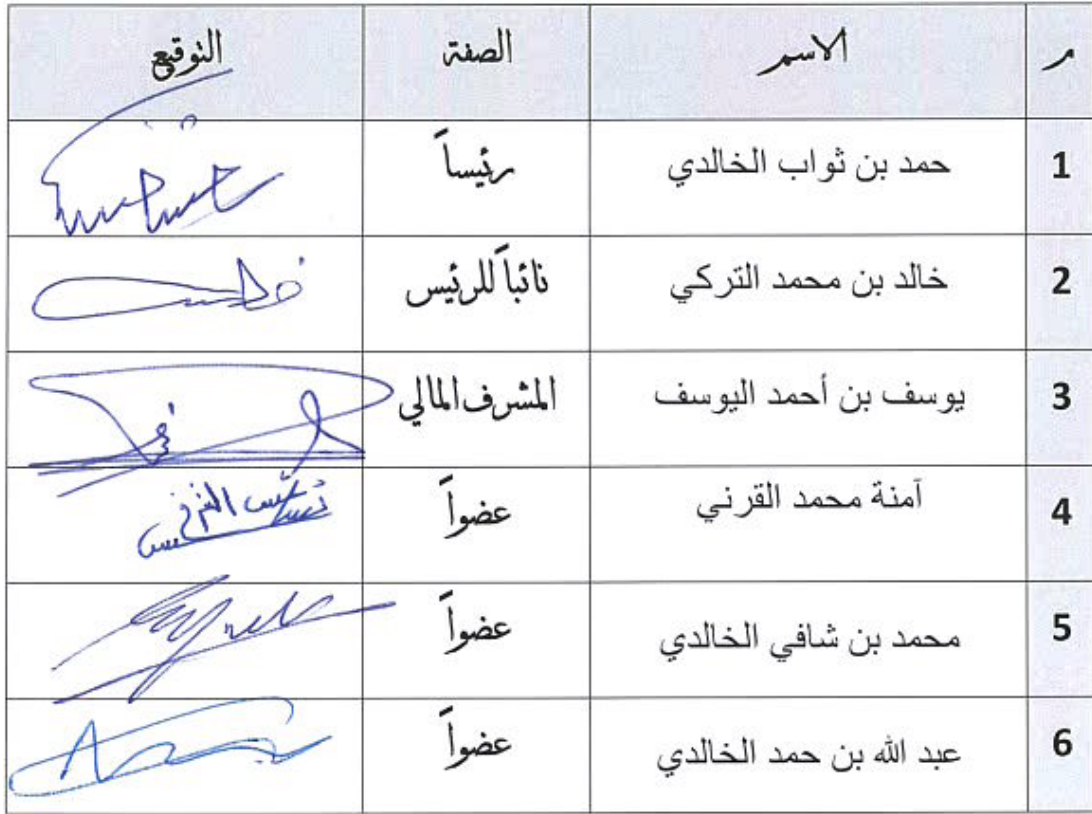 م الاسم الصفة التوقيع
1 حمد بن ثواب الخالدي رئيساً
2 خالد بن محمد التركي نائباً للرئيس
3 يوسف بن أحمد اليوسف المشرف المالي
4 آمنة محمد القرني عضواً
5 محمد بن شافي الخالدي عضواً
6 عبد الله بن حمد الخالدي عضواً